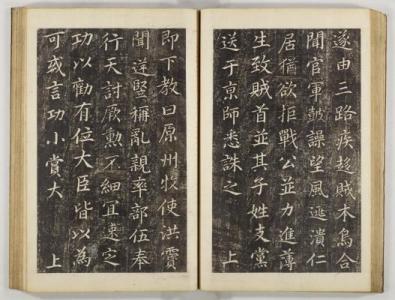 遂由三路疾趍賊木烏合
聞官軍皷譟望風逃潰仁
居猶欲拒戰公並力進薄
生致賊首並其子姓支黨
送于京師悉誅之　上
即下教曰原州牧使洪靌
聞逆竪稱亂親率部伍奉
行天討厥勲不細宜速定
功以勸有位大臣皆以為
可或言功小賞大　上